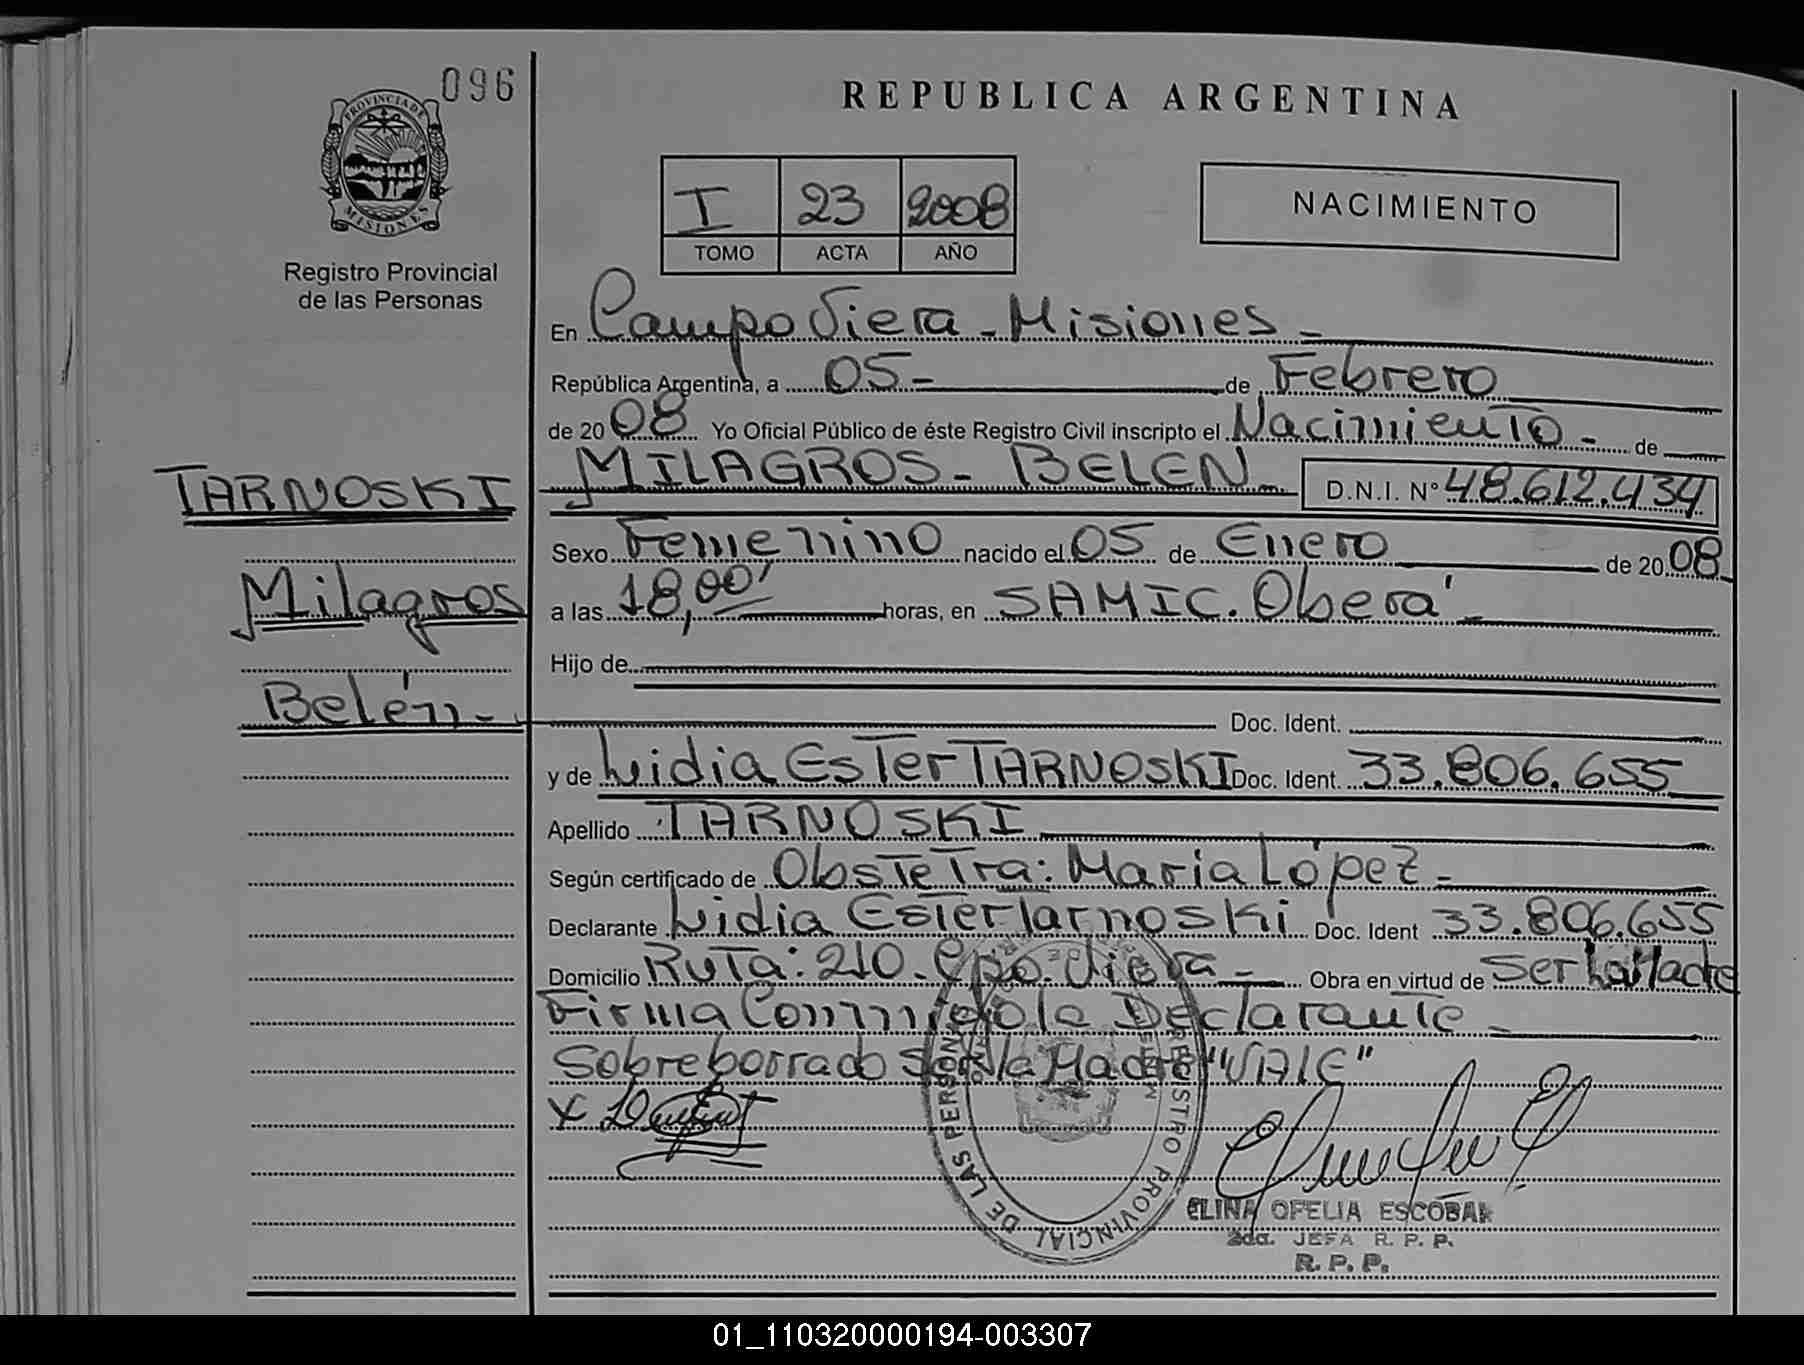 096
PROVINCIA DE
MISIONES
Registro Provincial
de las Personas
TARNOSKI
Milagros
Belén -
REPUBLICA ARGENTINA
I 23 2008
TOMO ACTA AÑO
NACIMIENTO
En Campo Viera - Misiones -
República Argentina, a 05 - de Febrero
de 2008 Yo Oficial Público de éste Registro Civil inscripto el Nacimiento - de
MILAGROS - BELEN - D.N.I. Nº 48.612.434
Sexo Femenino nacido el 05 de Enero de 2008
a las 18,00' horas, en SAMIC. Oberá -
Hijo de
Doc. Ident.
y de Lidia Ester TARNOSKI Doc. Ident. 33.806.655
Apellido TARNOSKI
Según certificado de Obstetra: Maria López -
Declarante Lidia Ester Tarnoski Doc. Ident 33.806.655
Domicilio Ruta: 210. Cpo. Viera - Obra en virtud de Ser La Madre
Firma Conmigo la Declarante -
Sobreborrado Ser la Madre "VALE"
X
REGISTRO PROVINCIAL DE LAS PERSONAS
ELINA OFELIA ESCOBAR
2da. JEFA R. P. P.
R. P. P.
01_110320000194-003307